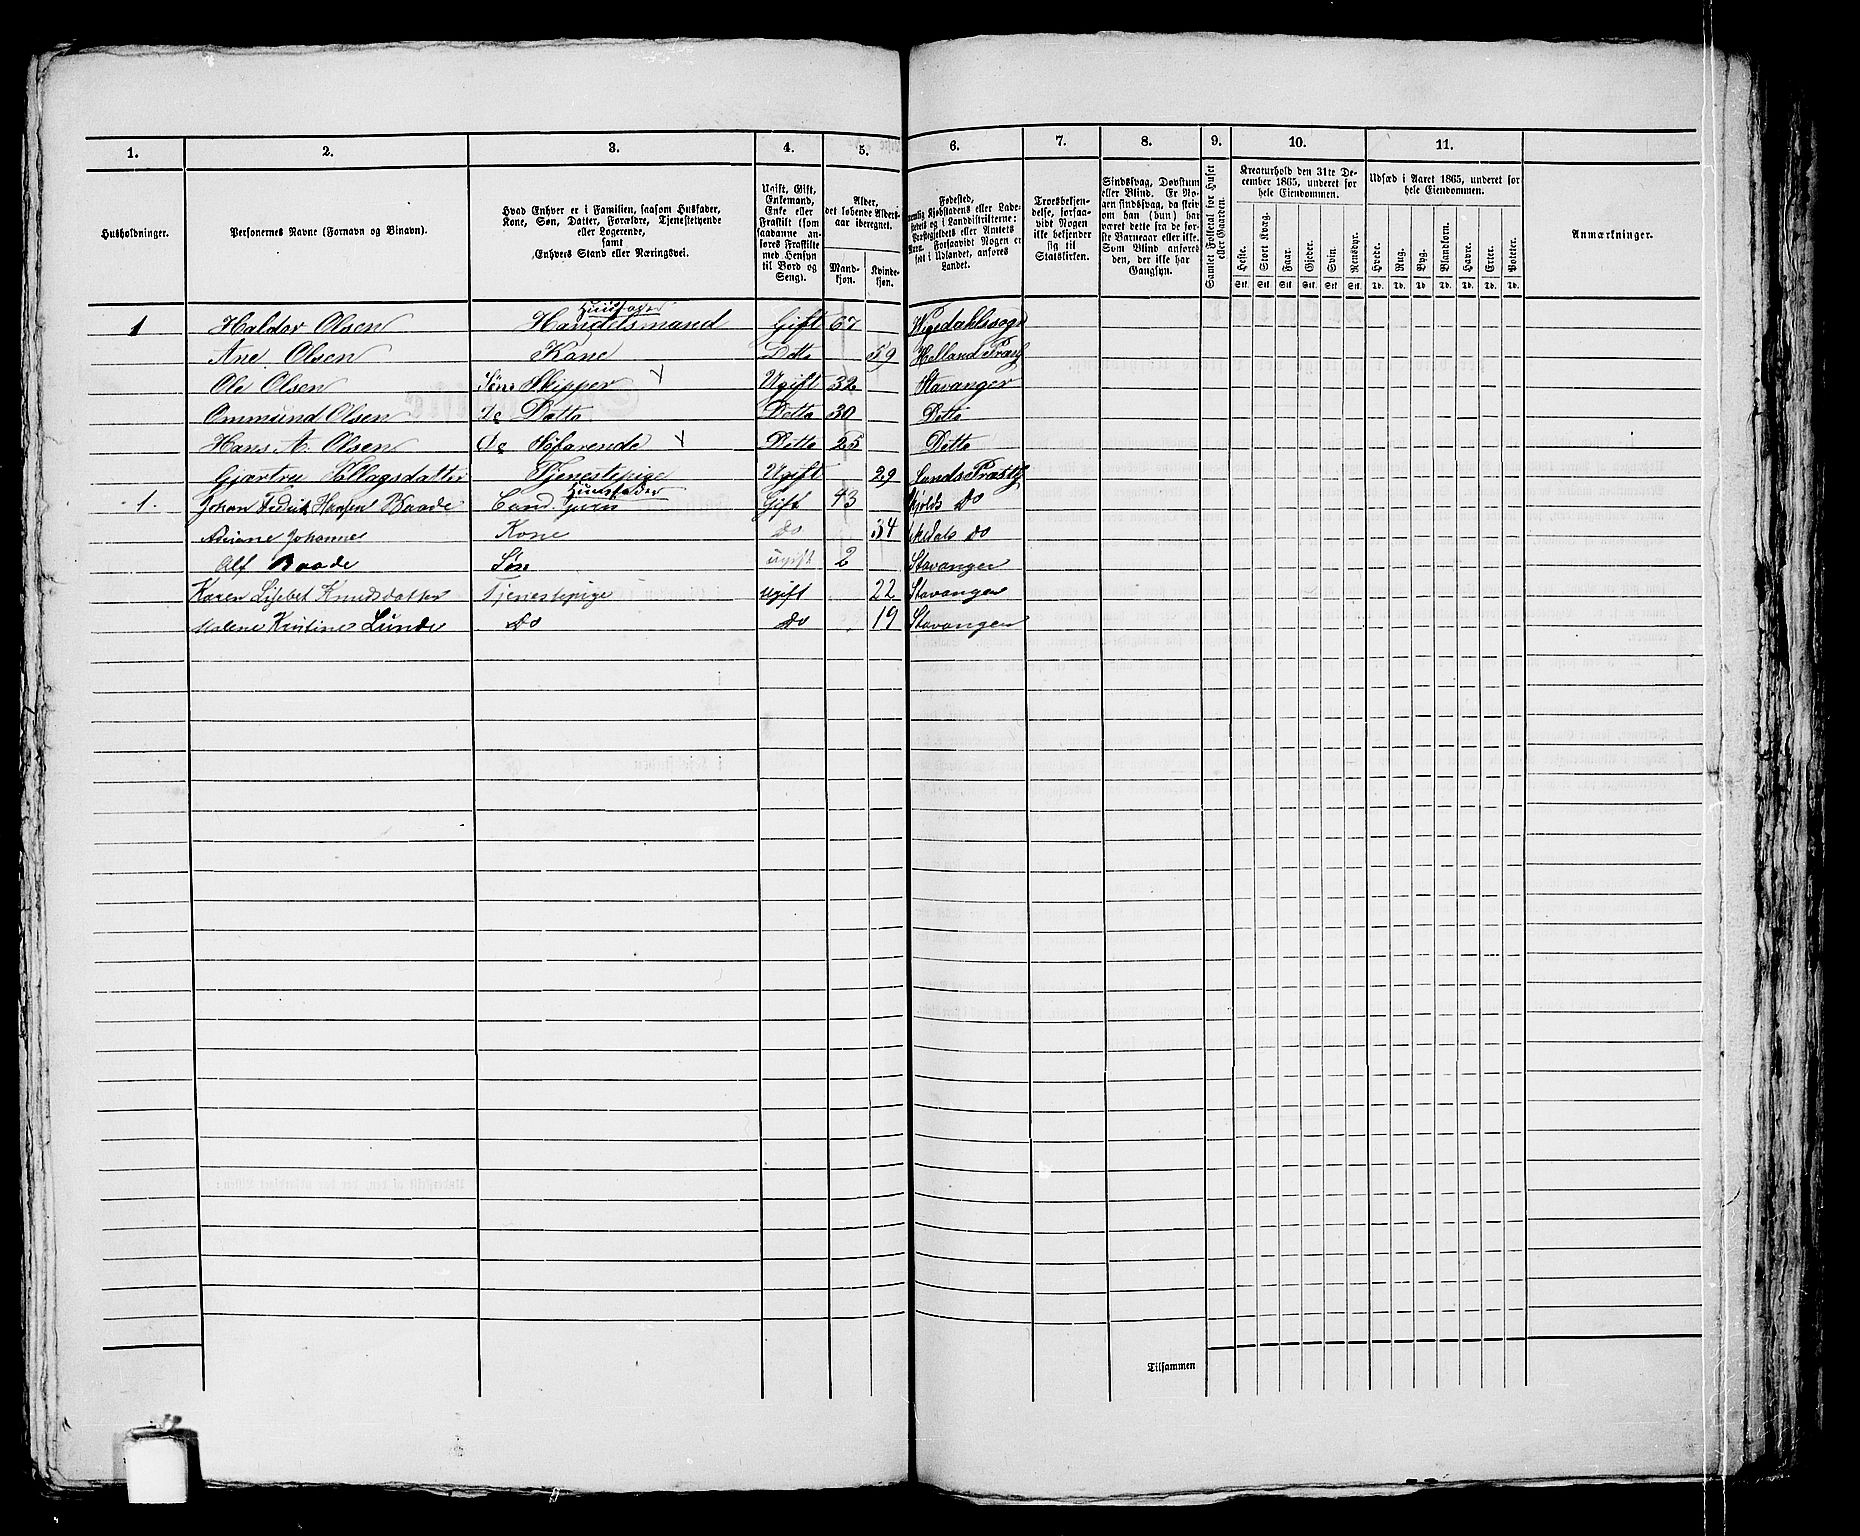 1. 2. 3. 4. 5. 6. 7. 8. 9. 10. 11.
Husholdninger.
Personernes Navne (Fornavn og Binavn).
Hvad Enhver er i Familien, saasom Husfader,
Kone, Søn, Datter, Forældre, Tjenestetyende
eller Logerende,
samt
Enhvers Stand eller Næringsvei.
Ugift, Gift,
Enkemand,
Enke eller
Fraskilt (som
saadanne an-
føres Fraskilte
med Hensyn
til Bord og
Seng).
Alder,
det løbende Alders-
aar iberegnet.
Mand-
kjøn.
Kvinde-
kjøn.
Fødested,
nemlig Kjøbstadens eller Lade-
stedets og i Landdistrikterne:
Præstegjeldets eller Amtets
Navn. Forsaavidt Nogen er
født i Udlandet, anføres
Landet.
Troesbekjen-
delse, forsaa-
vidt Nogen
ikke bekjender
sig til
Statskirken.
Sindssvag, Døvstum
eller Blind. Er No-
gen sindssvag, da skriv
om han (hun) har
været dette fra de før-
ste Barneaar eller ikke.
Som Blind anføres
den, der ikke har
Gangsyn.
Samlet Folketal for Huset
eller Gaarden.
Kreaturhold den 31te De-
cember 1865, underet for
hele Eiendommen.
Heste. Stort Kvæg. Faar. Gjeder. Svin. Rensdyr.
Stk. Stk. Stk. Stk. Stk. Stk.
Udsæd i Aaret 1865, underet for
hele Eiendommen.
Hvede. Rug. Byg. Blandkorn. Havre. Erter. Poteter.
Td. Td. Td. Td. Td. Td. Td.
Anmærkninger.
Huusfader
1 Haldor Olsen Handelsmand Gift 67
Ane Olsen Kone Ditto 59 Helland Præsg
Ole Olsen Søn Skipper Ugift 32 Stavanger
Ommund Olsen Do Ditto Ditto 30 Ditto
Hans A. Olsen Do Søfarende Ditto 25 Ditto
Tjenestepige Ugift 29 Lunds Præstg
Huusfader
1. Johan Fredrik Hansen Baade Cand. juris Gift 43 Skjolds Do
Johanne Kone Do 34 Do
Alf Baade Søn ugift 2 Stavanger
Karen Lisebet Knudsdatter Tjenestepige ugift 22 Stavanger
Malene Kristine Lunde Do Do 19 Stavanger
Tilsammen